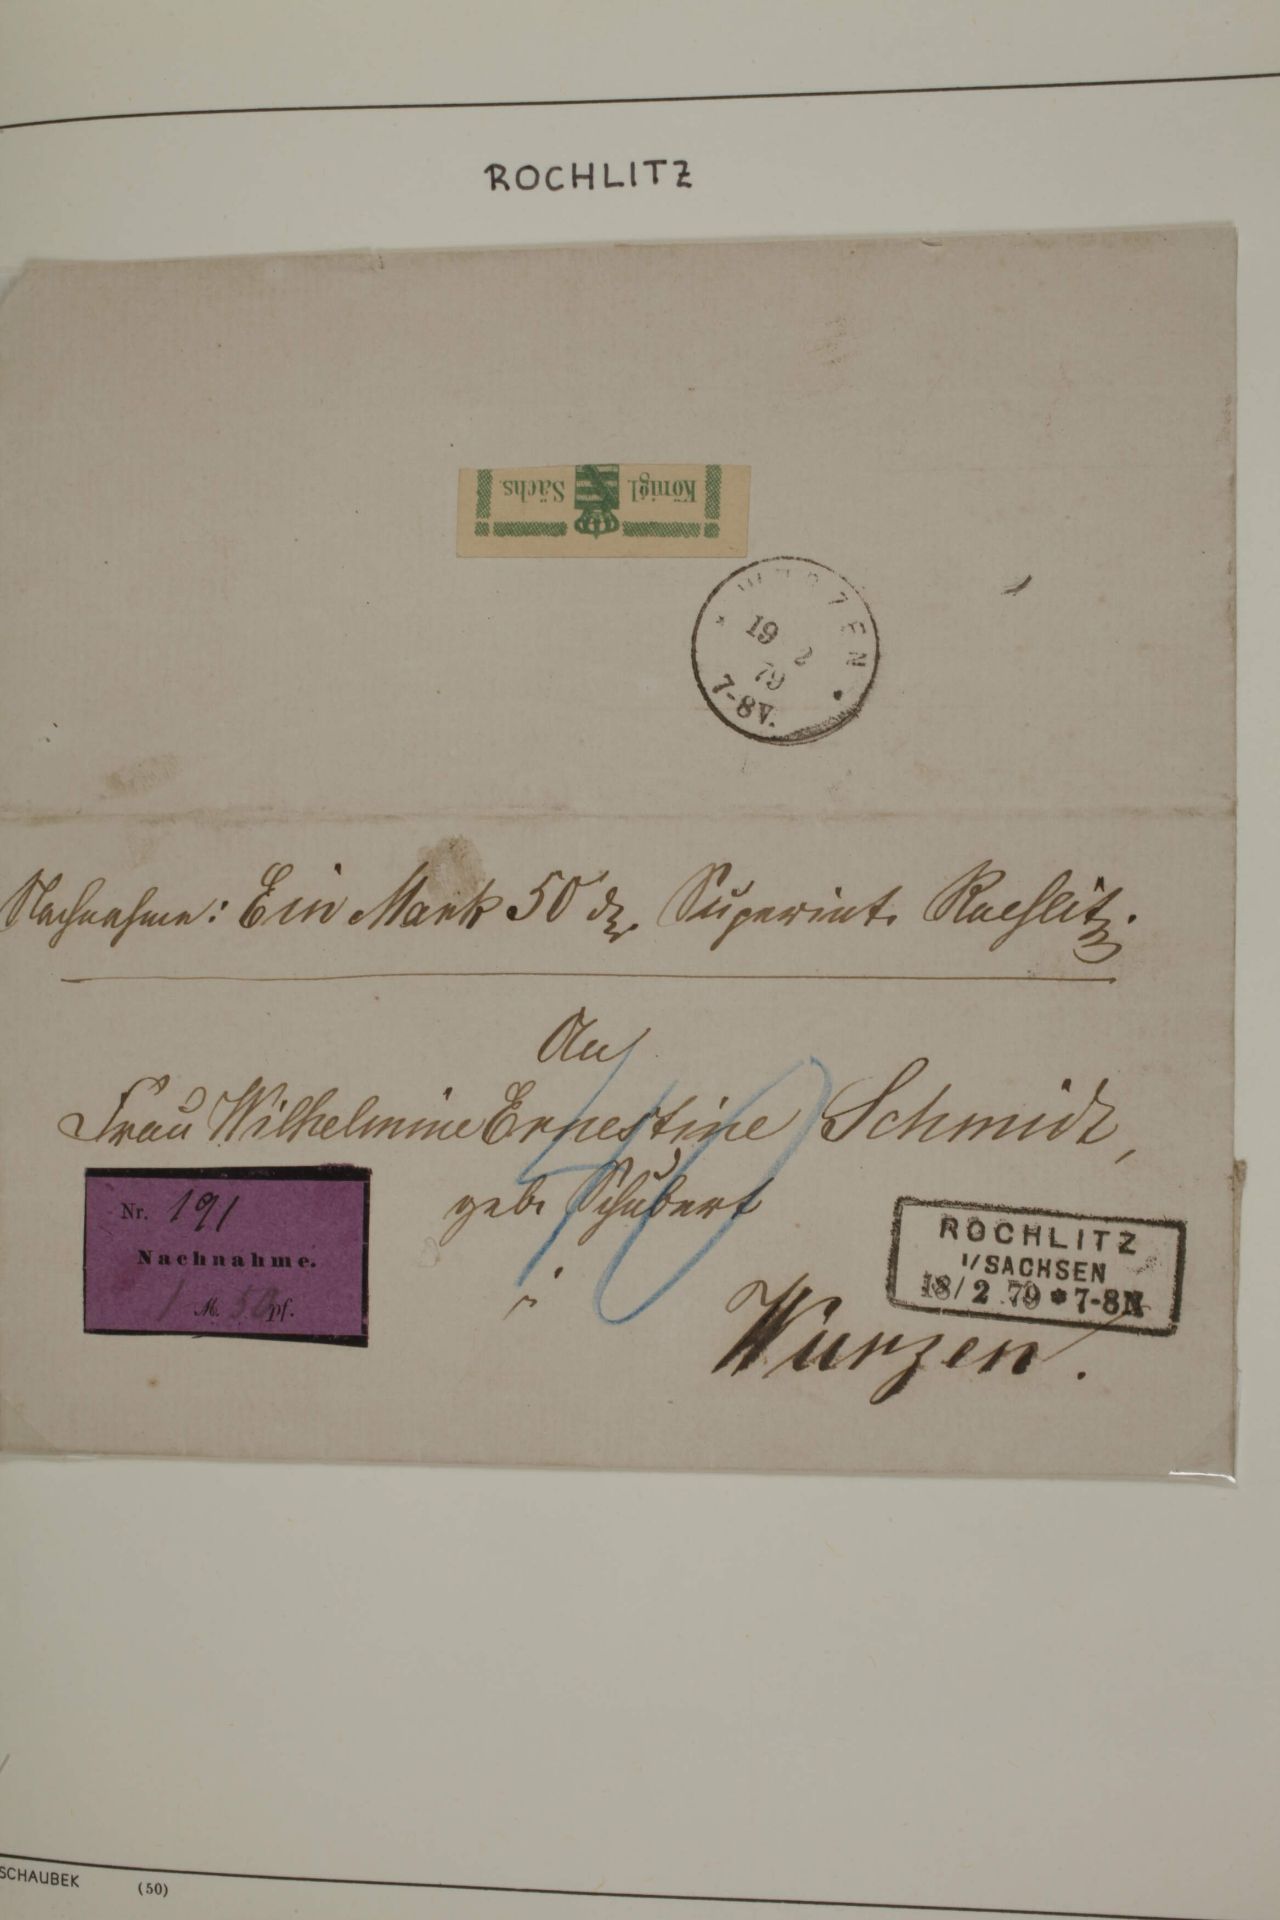 ROCHLITZ
Königl. Sächs.
WURZEN
19 2
79
7-8V.
Nachnahme: Ein Mark 50 Superint. Rochlitz.
An
Frau Wilhelmine Ernestine Schmidt,
geb. Schubert
40
i
Nr. 191
Nachnahme.
1 M. 50 pf.
ROCHLITZ
I/SACHSEN
18/2 79 * 7-8N
Wurzen.
SCHAUBEK (50)